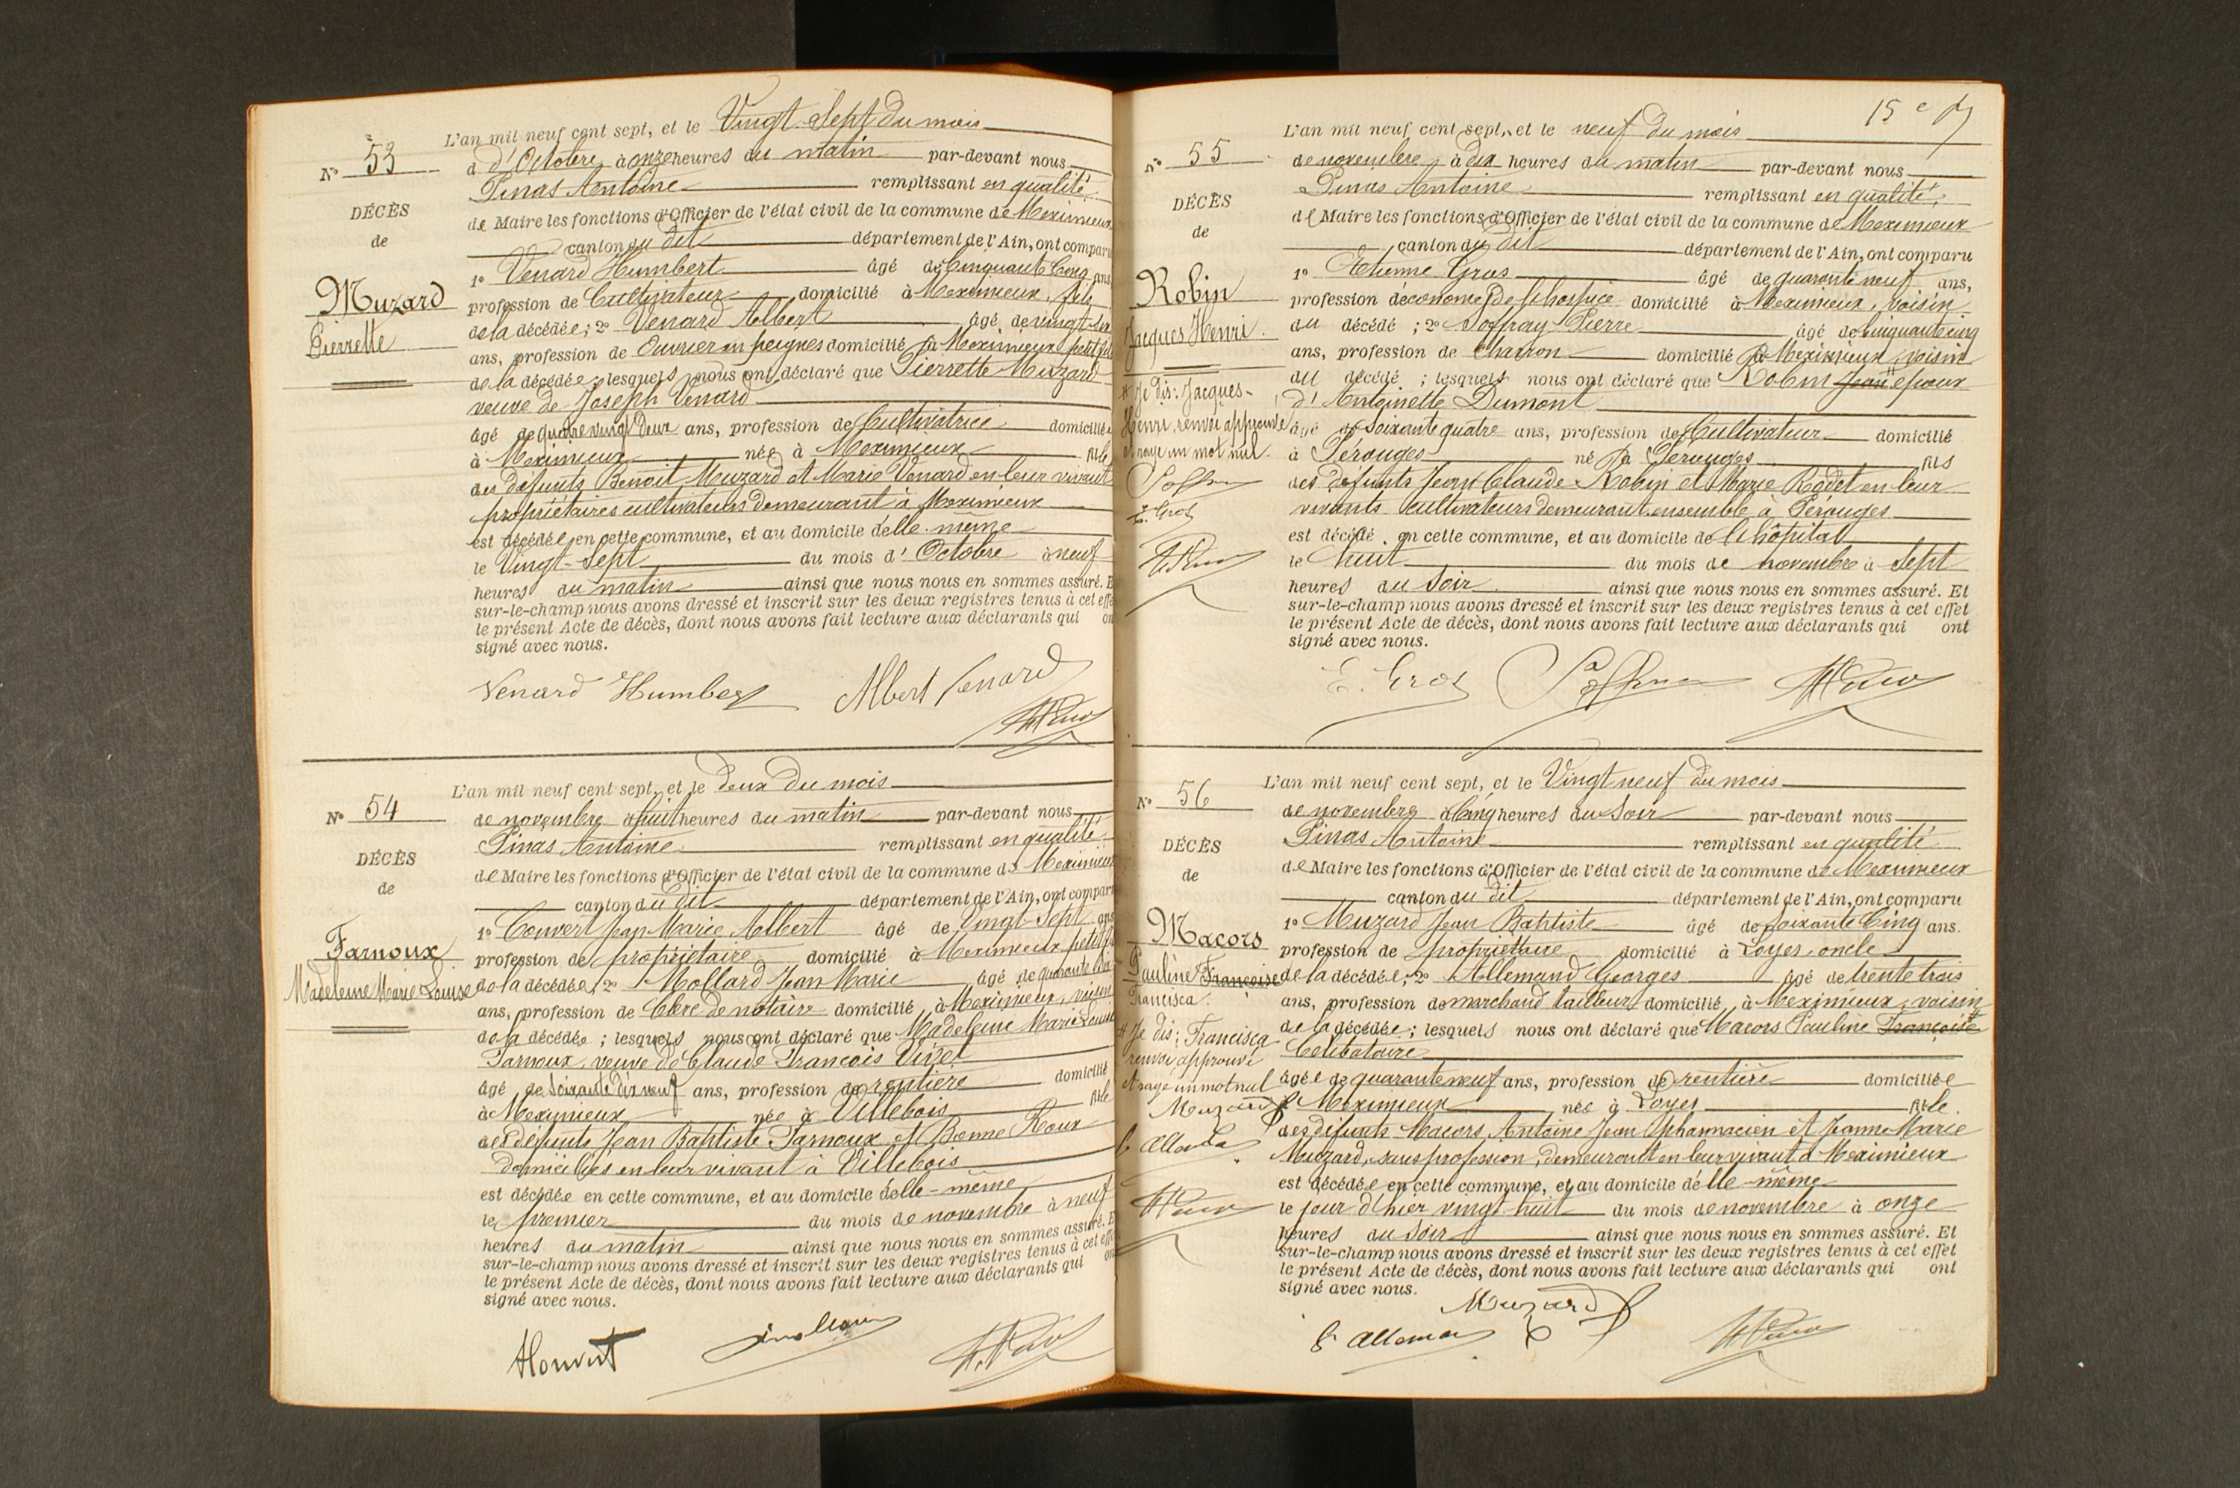 L'an mil neuf cent sept, et le Vingt-Sept du mois
N° 53
d'Octobre à onze heures du matin par-devant nous
Pinas Antoine remplissant en qualité
DÉCÈS
de Maire les fonctions d'Officier de l'état civil de la commune de Meximieux
de
canton du dit département de l'Ain, ont comparu
1° Venard Humbert âgé de Cinquante Cinq ans
Muzard
profession de Cultivateur domicilié à Meximieux, fils
Pierrette
de la décédée; 2° Venard Albert âgé de vingt-six
ans, profession de Ouvrier en peignes domicilié à Meximieux petit fils
de la décédée; lesquels nous ont déclaré que Pierrette Muzard
veuve de Joseph Venard
âgé de quatre vingt Deux ans, profession de Cultivatrice domiciliée
à Meximieux née à Meximieux fille
des défunts Benoit Muzard et Marie Venard en leur vivant
propriétaires cultivateurs demeurant à Meximieux
est décédée en cette commune, et au domicile d'elle-même
le Vingt-Sept du mois d'Octobre à neuf
heures du matin ainsi que nous nous en sommes assuré. E
sur-le-champ nous avons dressé et inscrit sur les deux registres tenus à cet effe
le présent Acte de décès, dont nous avons fait lecture aux déclarants qui on
signé avec nous.
Venard Humbert Albert Venard
L'an mil neuf cent sept, et le deux du mois
N° 54
de novembre à huit heures du matin par-devant nous
Pinas Antoine remplissant en qualité
DÉCÈS
de Maire les fonctions d'Officier de l'état civil de la commune de Meximieux
de
canton du dit département de l'Ain, ont comparu
1° Convert Jean Marie Albert âgé de Vingt-Sept ans
Farnoux
profession de propriétaire domicilié à Meximieux petit fils
Madeleine Marie Louise
de la décédée, 2° Mollard Jean Marie âgé de quarante
ans, profession de Clerc de notaire domicilié à Meximieux, voisin
de la décédée; lesquels nous ont déclaré que Madeleine Marie Louise
Farnoux, veuve de Claude François Vizet
âgé de Soixante dix neuf ans, profession de rentière domicilié
à Meximieux née à Villebois fille
des défunts Jean Baptiste Farnoux et Bonne Roux
domiciliés en leur vivant à Villebois
est décédée en cette commune, et au domicile d'elle-même
le premier du mois de novembre à neuf
heures du matin ainsi que nous nous en sommes assuré. E
sur-le-champ nous avons dressé et inscrit sur les deux registres tenus à cet effe
le présent Acte de décès, dont nous avons fait lecture aux déclarants qui on
signé avec nous.
15e
L'an mil neuf cent sept, et le neuf du mois
N° 55
de novembre à dix heures du matin par-devant nous
Pinas Antoine remplissant en qualité
DÉCÈS
de Maire les fonctions d'Officier de l'état civil de la commune de Meximieux
de
canton du dit département de l'Ain, ont comparu
1° Etienne Gros âgé de quarante neuf ans,
Robin
profession d'économe de l'hospice domicilié à Meximieux, voisin
Jacques Henri
du décédé; 2° Soffray Pierre âgé de cinquante cinq
ans, profession de Charron domicilié à Meximieux voisin
du décédé; lesquels nous ont déclaré que Robin Jean epoux
Je dis: Jacques-
d'Antoinette Dumont
Henri, renvoi approuvé
âgé de Soixante quatre ans, profession de Cultivateur domicilié
et rayé un mot nul.
à Pérouges né à Pérouges fils
des défunts Jean Claude Robin et Marie Rodet en leur
E. Gros
vivants cultivateurs demeurant ensemble à Pérouges
est décédé en cette commune, et au domicile de l'hôpital
le huit du mois de novembre à Sept
heures du Soir ainsi que nous nous en sommes assuré. Et
sur-le-champ nous avons dressé et inscrit sur les deux registres tenus à cet effet
le présent Acte de décès, dont nous avons fait lecture aux déclarants qui ont
signé avec nous.
E. Gros
L'an mil neuf cent sept, et le Vingt neuf du mois
N° 56
de novembre à Cinq heures du Soir par-devant nous
Pinas Antoine remplissant en qualité
DÉCÈS
de Maire les fonctions d'Officier de l'état civil de la commune de Meximieux
de
canton du dit département de l'Ain, ont comparu
1° Muzard Jean Baptiste âgé de Soixante Cinq ans.
Macors
profession de propriétaire domicilié à Loyes, oncle
Pauline Françoise
de la décédée, 2° Allemand Georges âgé de trente trois
Francisca.
ans, profession de marchand tailleur domicilié à Meximieux, voisin
Je dis: Francisca
de la décédée; lesquels nous ont déclaré que Macors Pauline Françoise
renvoi approuvé
Célibataire
et rayé un mot nul
âgée de quarante neuf ans, profession de rentière domiciliée
Muzard
à Meximieux née à Loyes fille.
des défunts Macors, Antoine Jean pharmacien et Jeanne Marie
Muzard, sans profession, demeurant en leur vivant à Meximieux
est décédée en cette commune, et au domicile d'elle-même
le jour d'hier vingt-huit du mois de novembre à onze
heures du Soir ainsi que nous nous en sommes assuré. Et
sur-le-champ nous avons dressé et inscrit sur les deux registres tenus à cet effet
le présent Acte de décès, dont nous avons fait lecture aux déclarants qui ont
signé avec nous.
Muzard
G. Alleman